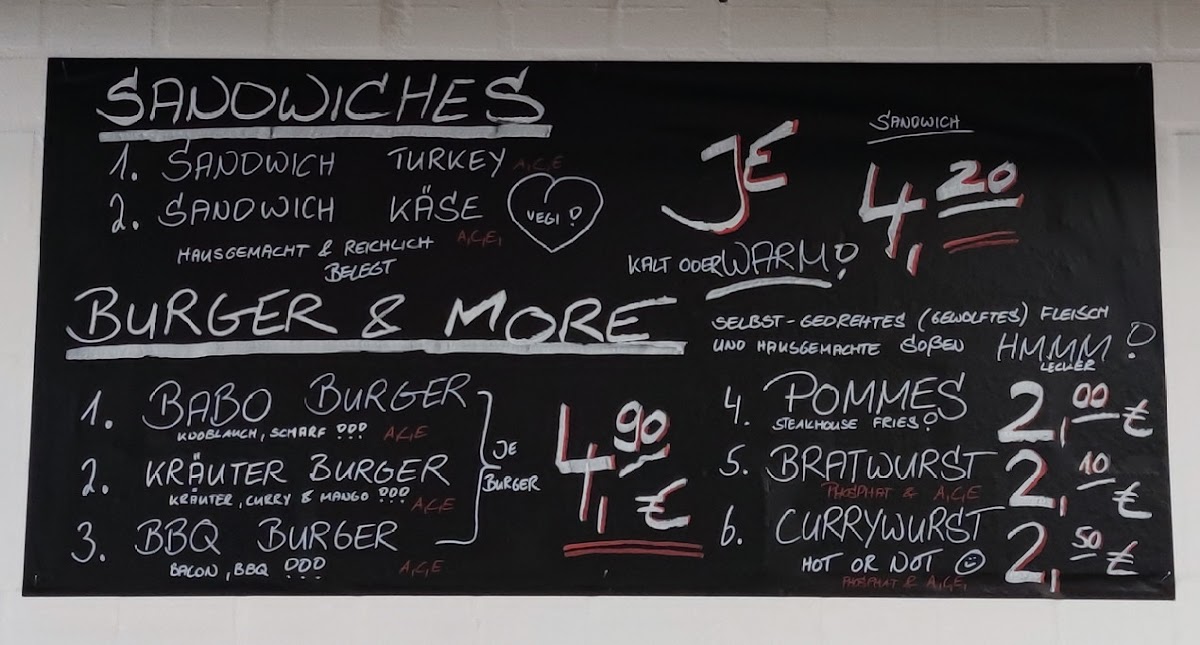 SANDWICHES
1. SANDWICH TURKEY A,C,E
2. SANDWICH KÄSE A,C,E,
VEGI!
HAUSGEMACHT & REICHLICH
BELEGT
JE
SANDWICH
4,20
KALT ODER WARM!
BURGER & MORE
1. BABO BURGER
KNOBLAUCH, SCHARF !!! A,C,E
2. KRÄUTER BURGER
KRÄUTER, CURRY & MANGO !!! A,C,E
3. BBQ BURGER
BACON, BBQ !!! A,C,E
JE
BURGER
4,90 €
SELBST-GEDREHTES (GEWOLFTES) FLEISCH
UND HAUSGEMACHTE SOßEN HMMM!
LECKER
4. POMMES 2,00 €
STEAKHOUSE FRIES!
5. BRATWURST 2,10 €
PHOSPHAT & A,C,E
6. CURRYWURST 2,50 €
HOT OR NOT ☺
PHOSPHAT & A,C,E,